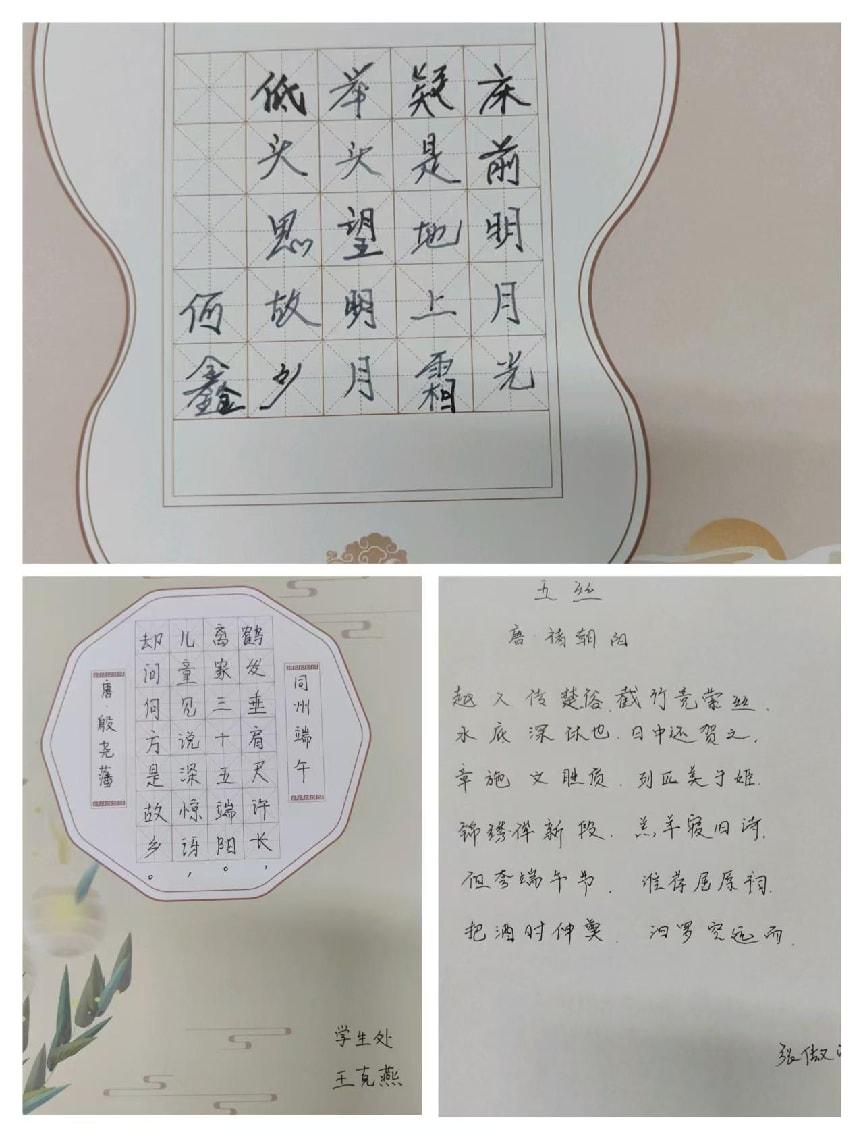 床前明月光
疑是地上霜
举头望明月
低头思故乡
何鑫
同州端午
鹤发垂肩尺许长,
离家三十五端阳。
儿童见说深惊讶,
却问何方是故乡。
唐·殷尧藩
学生处
王克燕
五丝
唐·褚朝阳
越人传楚俗,截竹竞萦丝.
水底深休也.日中还贺之.
章施文胜质.列匹美于姬.
锦绣侔新段.羔羊寝旧诗.
但夸端午节.谁荐屈原祠.
把酒时伸奠.汨罗空远而.
张傲